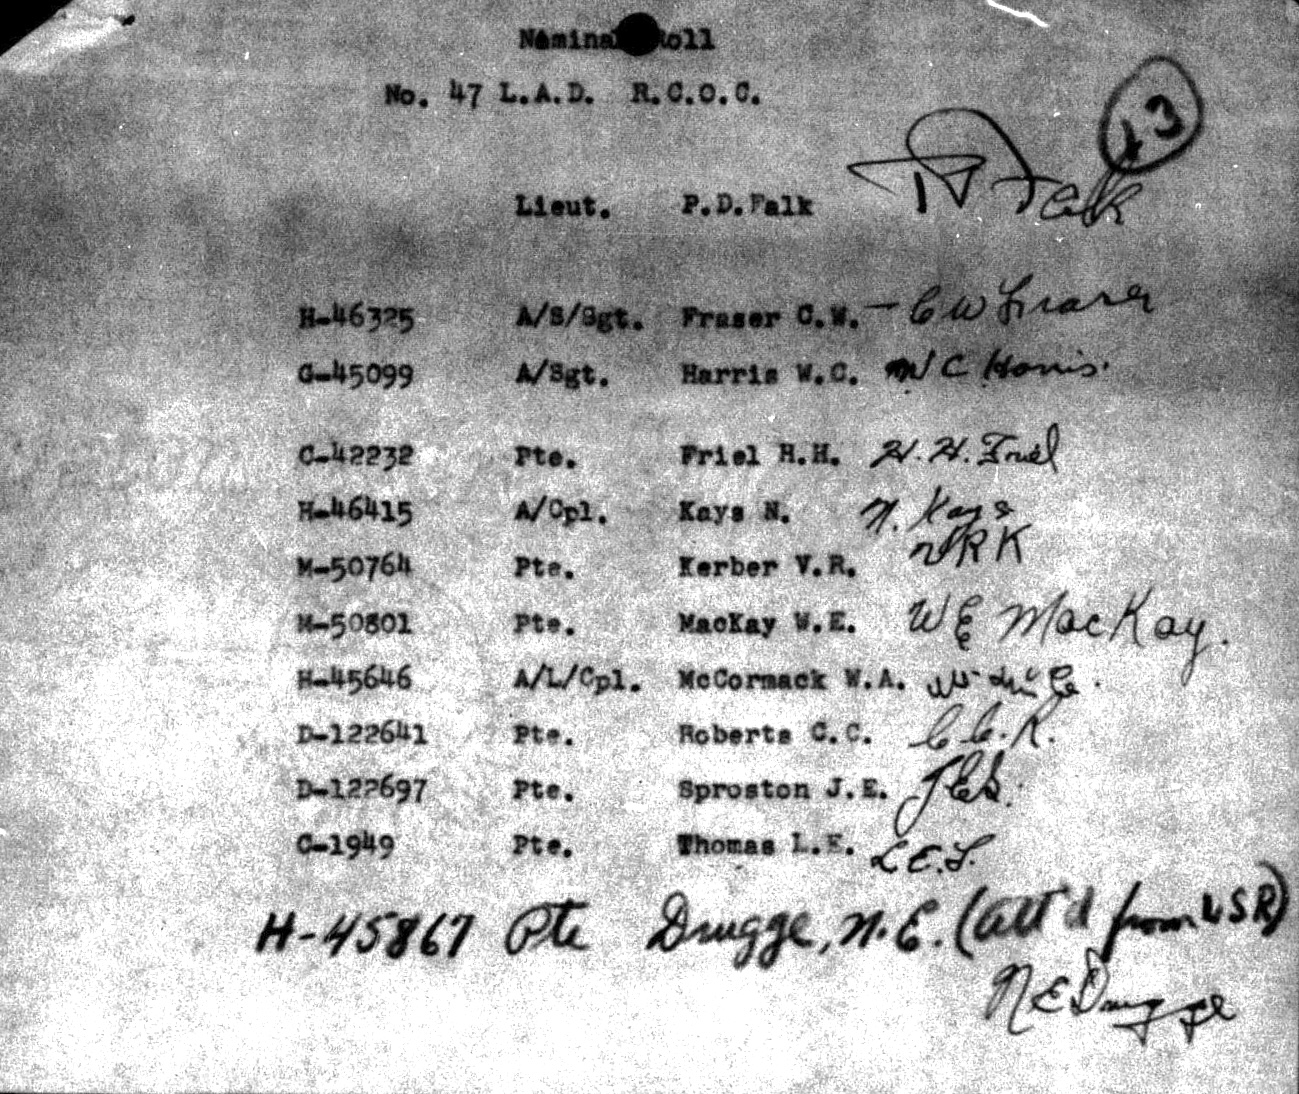 Nominal Roll
No. 47 L.A.D. R.C.O.C.
13
Lieut. P.D.Falk PD Falk
H-46325 A/S/Sgt. Fraser C.W. - C W Fraser
G-45099 A/Sgt. Harris W.C. W C Harris.
C-42232 Pte. Friel H.H. H. H. Friel
H-46415 A/Cpl. Kays N. N. Kays
M-50764 Pte. Kerber V.R. VRK
M-50801 Pte. MacKay W.E. W E MacKay.
H-45646 A/L/Cpl. McCormack W.A.
D-122641 Pte. Roberts C.C. C. C. R.
D-122697 Pte. Sproston J.E. JES.
C-1949 Pte. Thomas L.E. L.E.T.
H-45867 Pte Drugge, N.E. (att'd from LSR)
N E Drugge